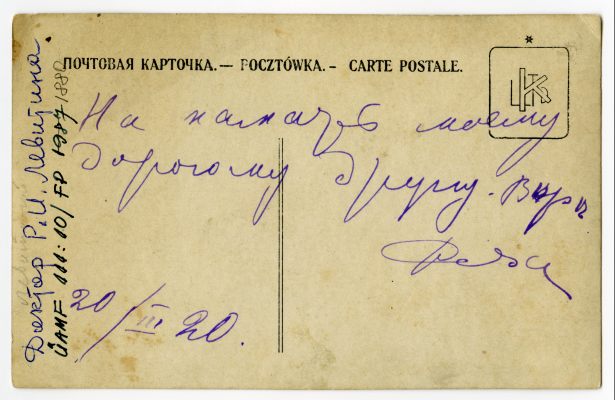 ПОЧТОВАЯ КАРТОЧКА.— POCZTÓWKA.- CARTE POSTALE.
На память моему
дорогому Другу. Вере
Роза
20/III 20.
Доктор Р.И. Левитина.
ÜAMF 111:10/FP 1987/1880